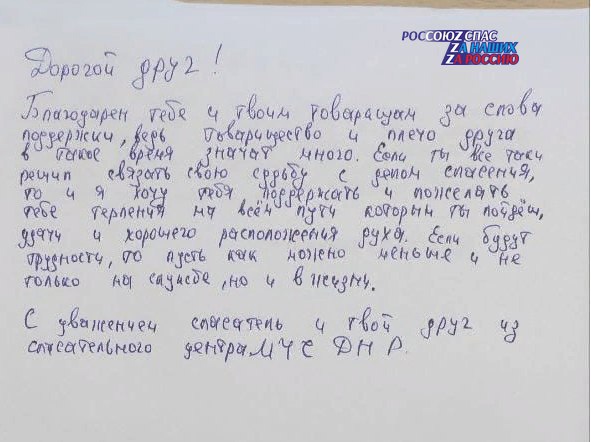 РОССОЮЗ СПАС
ZА НАШИХ
ZА РОССИЮ
Дорогой друг!
Благодарен тебе и твоим товарищам за слова
поддержки, ведь товарищество и плечо друга
в такое время значат много. Если ты все таки
решил связать свою судьбу с делом спасения,
то и я хочу тебя поддержать и пожелать
тебе терпения на всём пути которым ты пойдёш,
удачи и хорошего расположения духа. Если будут
трудности, то пусть как можно меньше и не
только на службе, но и в жизни.
С уважением спасатель и твой друг из
спасательного центра МЧС ДНР.